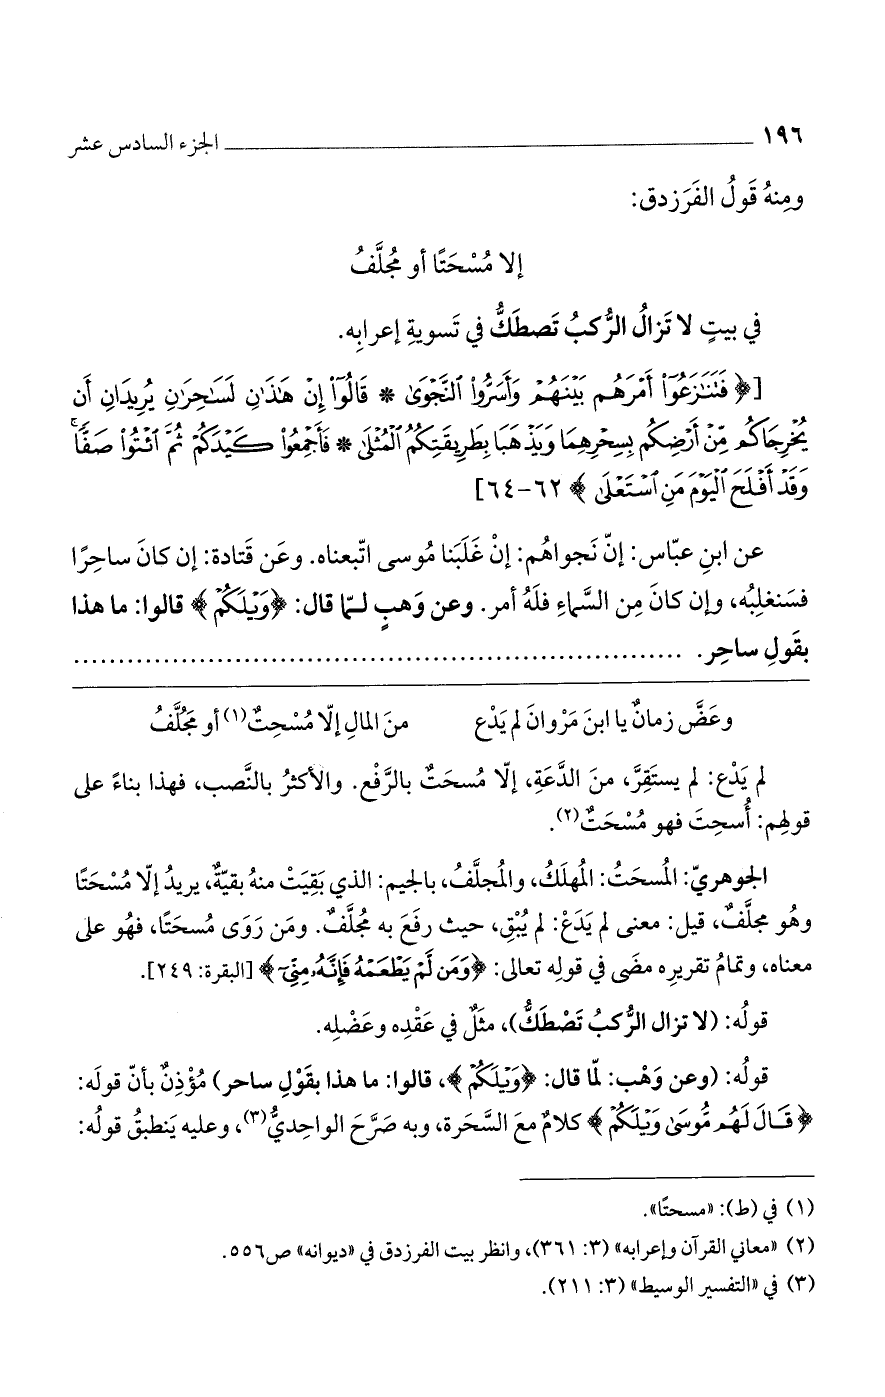 ١٩٦ ــــــــــــــــــــ الجزء السادس عشر
ومِنهُ قَولُ الفَرَزدق:
إلا مُسْحَتًا أو مُجلَّفُ
في بيتٍ لا تَزالُ الرُّكبُ تَصطَكُّ في تَسويةِ إعرابِه.
[﴿فَتَنَٰزَعُوٓا۟ أَمْرَهُم بَيْنَهُمْ وَأَسَرُّوا۟ ٱلنَّجْوَىٰ * قَالُوٓا۟ إِنْ هَٰذَٰنِ لَسَٰحِرَٰنِ يُرِيدَانِ أَن
يُخْرِجَاكُم مِّنْ أَرْضِكُم بِسِحْرِهِمَا وَيَذْهَبَا بِطَرِيقَتِكُمُ ٱلْمُثْلَىٰ * فَأَجْمِعُوا۟ كَيْدَكُمْ ثُمَّ ٱئْتُوا۟ صَفًّا ۚ
وَقَدْ أَفْلَحَ ٱلْيَوْمَ مَنِ ٱسْتَعْلَىٰ﴾ ٦٢-٦٤]
عن ابنِ عبّاس: إنّ نَجواهُم: إنْ غَلَبَنا مُوسى اتّبعناه. وعَن قَتادة: إن كانَ ساحِرًا
فسَنغلِبُه، وإن كانَ مِن السَّماءِ فلَهُ أمر. وعن وَهبٍ لـمّا قال: ﴿وَيْلَكُمْ﴾ قالوا: ما هذا
بقَولِ ساحِر. ......................................................................
وعَضَّ زمانٌ يا ابنَ مَرْوانَ لم يَدْع منَ المالِ إلّا مُسْحِتٌ(١) أو مَجُلَّفُ
لم يَدْع: لم يستَقِرَّ، منَ الدَّعَةِ، إلّا مُسحَتٌ بالرَّفْع. والأكثرُ بالنَّصب، فهذا بناءً على
قولهِم: أُسحِتَ فهو مُسْحَتٌ(٢).
الجوهريّ: المُسحَتُ: المُهلَكُ، والمُجلَّفُ، بالجيم: الذي بَقِيَتْ منهُ بقيّةٌ، يريدُ إلّا مُسْحَتًا
وهُو مجلَّفٌ، قيل: معنى لم يَدَعْ: لم يُبْقِ، حيث رفَعَ به مُجلَّفٌ. ومَن رَوَى مُسحَتًا، فهُو على
معناه، وتمامُ تقريرِه مضَى في قولِه تعالى: ﴿وَمَن لَّمْ يَطْعَمْهُ فَإِنَّهُۥ مِنِّىٓ﴾ [البقرة: ٢٤٩].
قولُه: (لا تزال الرُّكبُ تَصْطَكُّ)، مثَلٌ في عَقْدِه وعَضْلِه.
قولُه: (وعن وَهْب: لمّا قال: ﴿وَيْلَكُمْ﴾، قالوا: ما هذا بقَوْلِ ساحر) مُؤْذِنٌ بأنّ قولَه:
﴿قَالَ لَهُم مُّوسَىٰ وَيْلَكُمْ﴾ كلامٌ معَ السَّحَرة، وبه صَرَّحَ الواحِديُّ(٣)، وعليه يَنطبقُ قولُه:
(١) في (ط): «مسحتًا».
(٢) «معاني القرآن وإعرابه» (٣: ٣٦١)، وانظر بيت الفرزدق في «ديوانه» ص٥٥٦.
(٣) في «التفسير الوسيط» (٣: ٢١١).